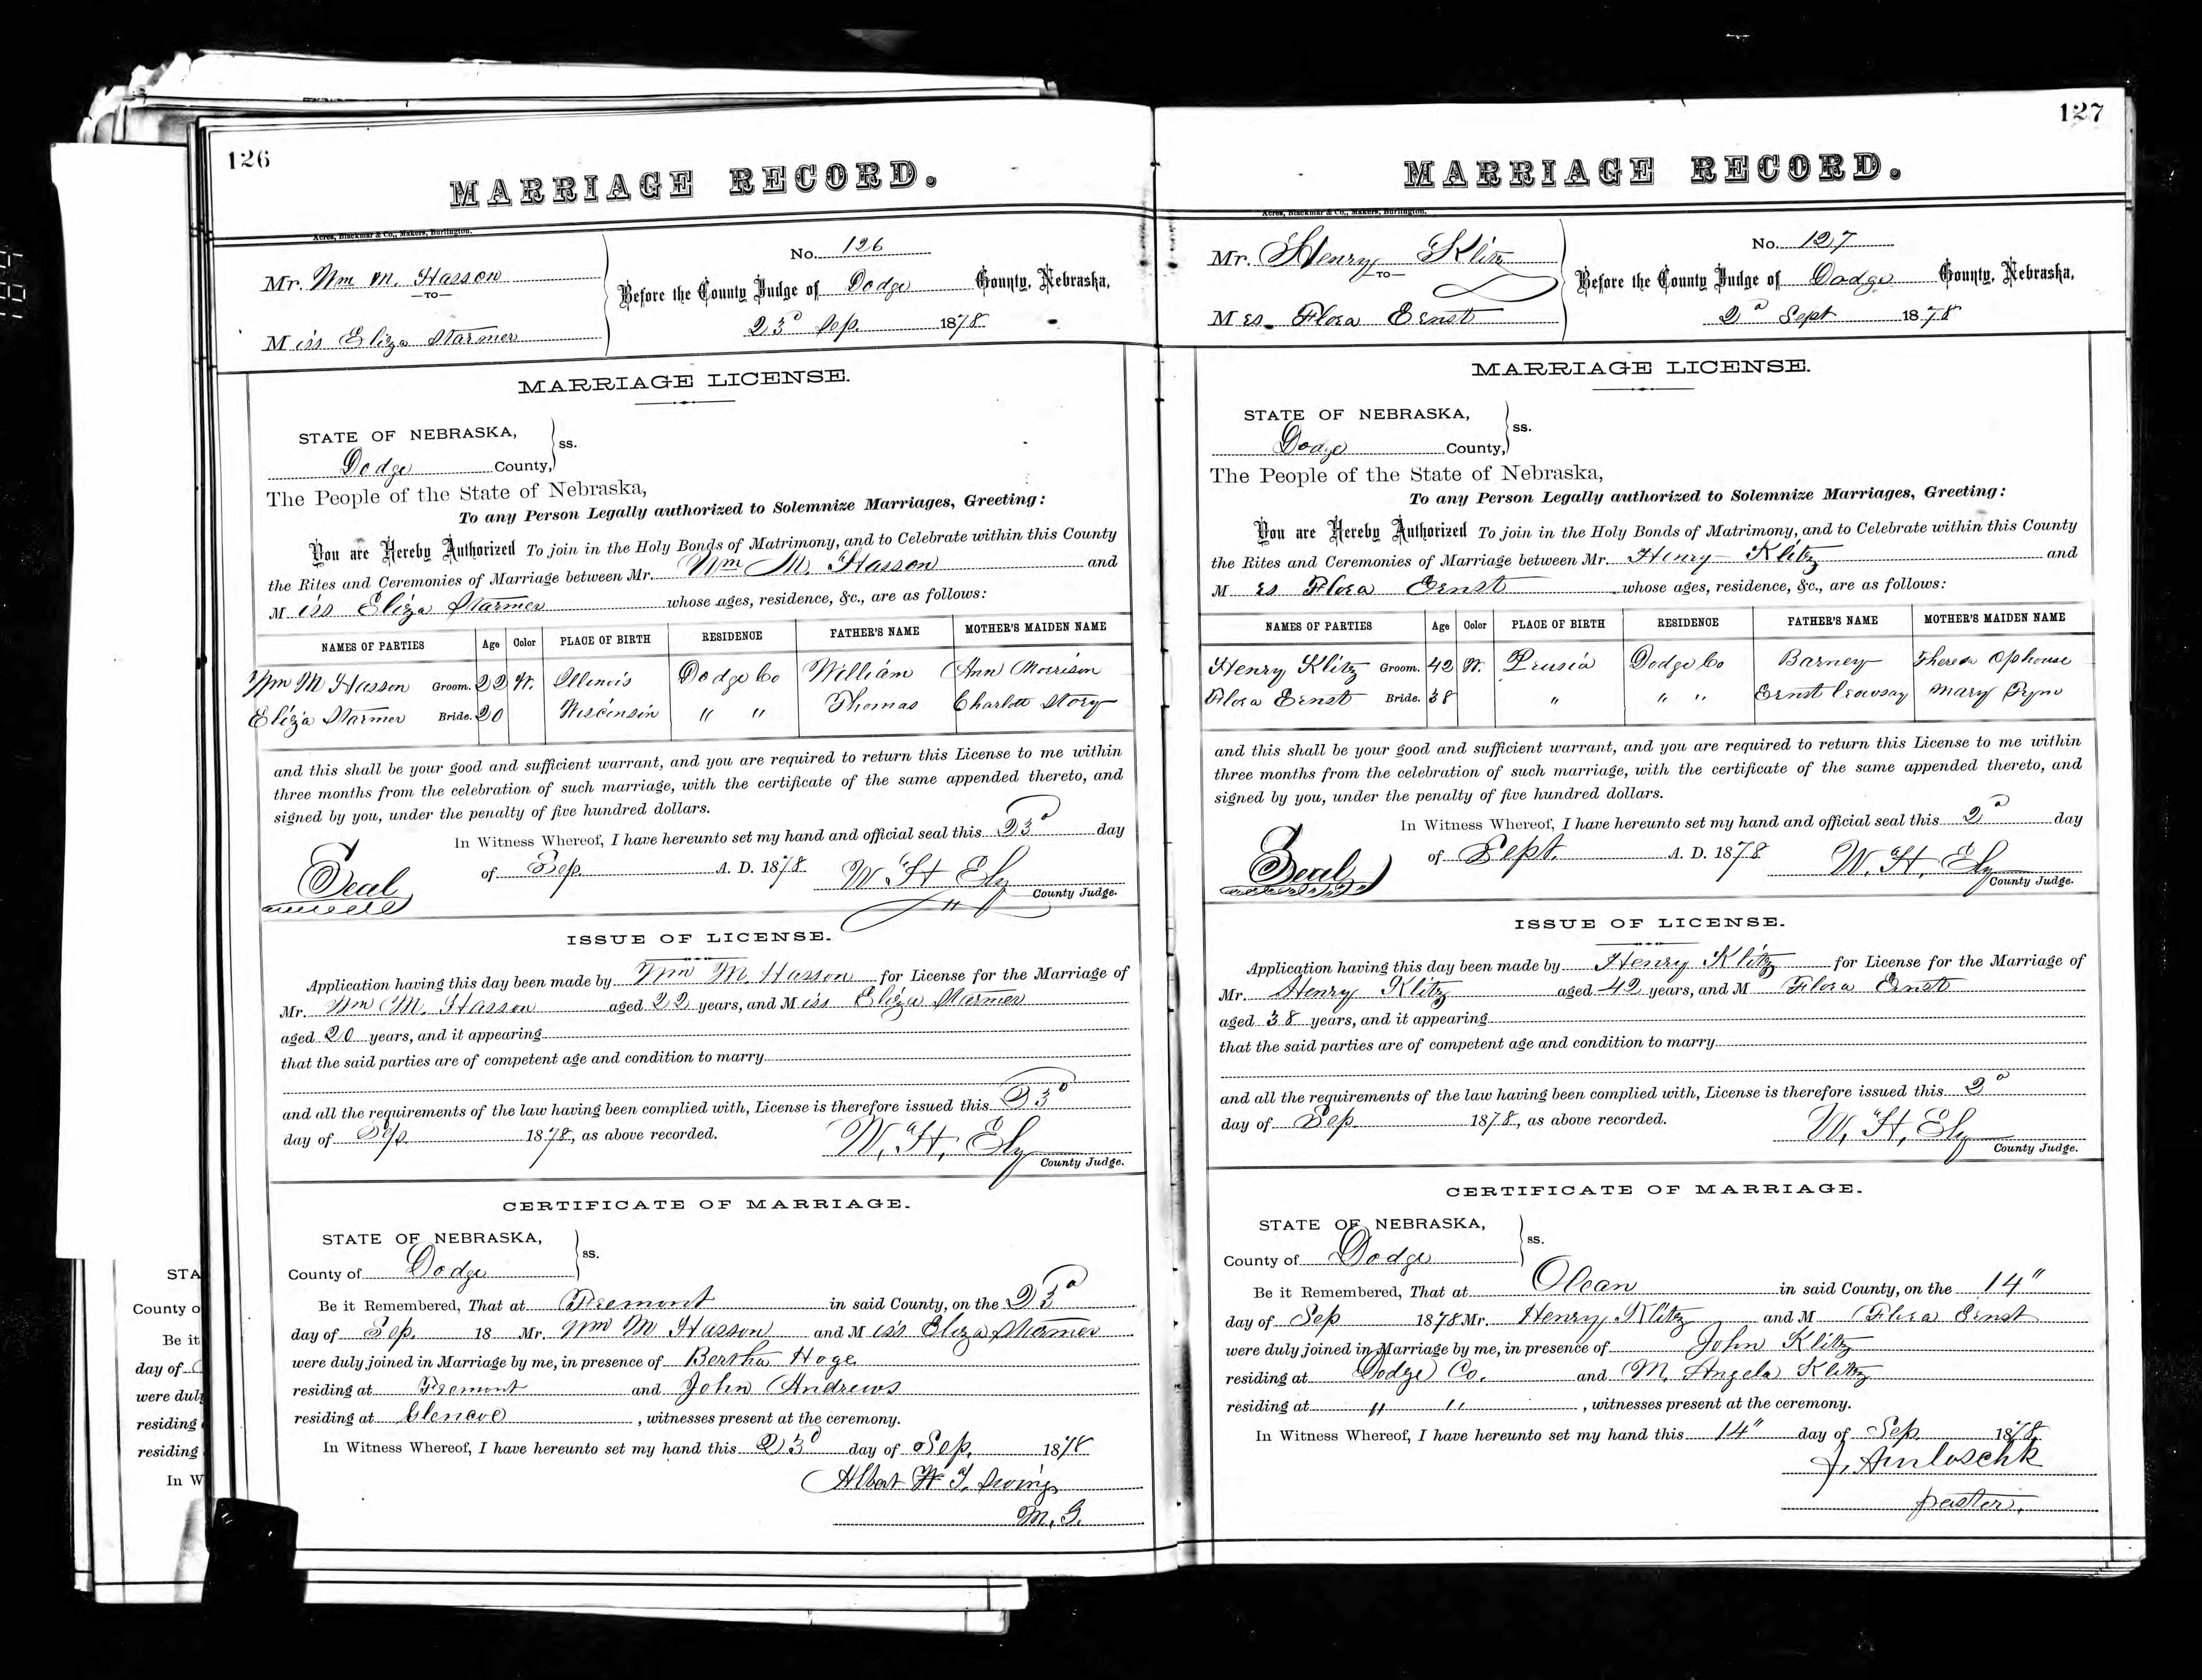 126
MARRIAGE RECORD.
Acres, Blackmar & Co., Makers, Burlington.
Mr. Wm M. Hasson
—TO—
Miss Eliza Starmer
No. 126
Before the County Judge of Dodge County, Nebraska,
23d Sep. 1878
MARRIAGE LICENSE.
STATE OF NEBRASKA,
Dodge County, ss.
The People of the State of Nebraska,
To any Person Legally authorized to Solemnize Marriages, Greeting:
You are Hereby Authorized To join in the Holy Bonds of Matrimony, and to Celebrate within this County
the Rites and Ceremonies of Marriage between Mr. Wm M. Hasson and
Miss Eliza Starmer whose ages, residence, &c., are as follows:
NAMES OF PARTIES Age Color PLACE OF BIRTH RESIDENCE FATHER'S NAME MOTHER'S MAIDEN NAME
Wm M Hasson Groom. 22 W. Illenois Dodge Co William Ann Morrison
Eliza Starmer Bride. 20 Wisconsin " " Thomas Charlott Story
and this shall be your good and sufficient warrant, and you are required to return this License to me within
three months from the celebration of such marriage, with the certificate of the same appended thereto, and
signed by you, under the penalty of five hundred dollars.
In Witness Whereof, I have hereunto set my hand and official seal this 23d day
of Sep. A. D. 1878. W H Ely
Seal County Judge.
ISSUE OF LICENSE.
Application having this day been made by Wm M. Hasson for License for the Marriage of
Mr. Wm M. Hasson aged 22 years, and Miss Eliza Starmer
aged 20 years, and it appearing
that the said parties are of competent age and condition to marry
and all the requirements of the law having been complied with, License is therefore issued this 23d
day of Sep. 1878, as above recorded. W. H. Ely
County Judge.
CERTIFICATE OF MARRIAGE.
STATE OF NEBRASKA,
County of Dodge ss.
Be it Remembered, That at Fremont in said County, on the 23d
day of Sep. 18 Mr. Wm M Hasson and Miss Eliza Starmer
were duly joined in Marriage by me, in presence of Bertha Hoge
residing at Fremont and John Andrews
residing at Glencoe, witnesses present at the ceremony.
In Witness Whereof, I have hereunto set my hand this 23d day of Sep. 1878
Albert W. T.
M. G.
STA
County o
Be it
day of
were duly
residing
residing
In W
127
MARRIAGE RECORD.
Acres, Blackmar & Co., Makers, Burlington.
Mr. Henry Klitz
—TO—
Mrs. Flora Ernst
No. 127
Before the County Judge of Dodge County, Nebraska,
2d Sept 1878
MARRIAGE LICENSE.
STATE OF NEBRASKA,
Dodge County, ss.
The People of the State of Nebraska,
To any Person Legally authorized to Solemnize Marriages, Greeting:
You are Hereby Authorized To join in the Holy Bonds of Matrimony, and to Celebrate within this County
the Rites and Ceremonies of Marriage between Mr. Henry Klitz and
Mrs Flora Ernst whose ages, residence, &c., are as follows:
NAMES OF PARTIES Age Color PLACE OF BIRTH RESIDENCE FATHER'S NAME MOTHER'S MAIDEN NAME
Henry Klitz Groom. 42 W. Prusia Dodge Co Barney Theresa Ophouse
Flora Ernst Bride. 38 " " " Ernst Mary
and this shall be your good and sufficient warrant, and you are required to return this License to me within
three months from the celebration of such marriage, with the certificate of the same appended thereto, and
signed by you, under the penalty of five hundred dollars.
In Witness Whereof, I have hereunto set my hand and official seal this 2d day
of Sept. A. D. 1878 W. H. Ely
Seal County Judge.
ISSUE OF LICENSE.
Application having this day been made by Henry Klitz for License for the Marriage of
Mr. Henry Klitz aged 42 years, and M Flora Ernst
aged 38 years, and it appearing
that the said parties are of competent age and condition to marry
and all the requirements of the law having been complied with, License is therefore issued this 2d
day of Sep. 1878, as above recorded. W. H. Ely
County Judge.
CERTIFICATE OF MARRIAGE.
STATE OF NEBRASKA,
County of Dodge ss.
Be it Remembered, That at Olean in said County, on the 14"
day of Sep 1878 Mr. Henry Klitz and M Flora Ernst
were duly joined in Marriage by me, in presence of John Klitz
residing at Dodge Co. and M. Angela Klitz
residing at " ", witnesses present at the ceremony.
In Witness Whereof, I have hereunto set my hand this 14" day of Sep. 1878.
pastor.